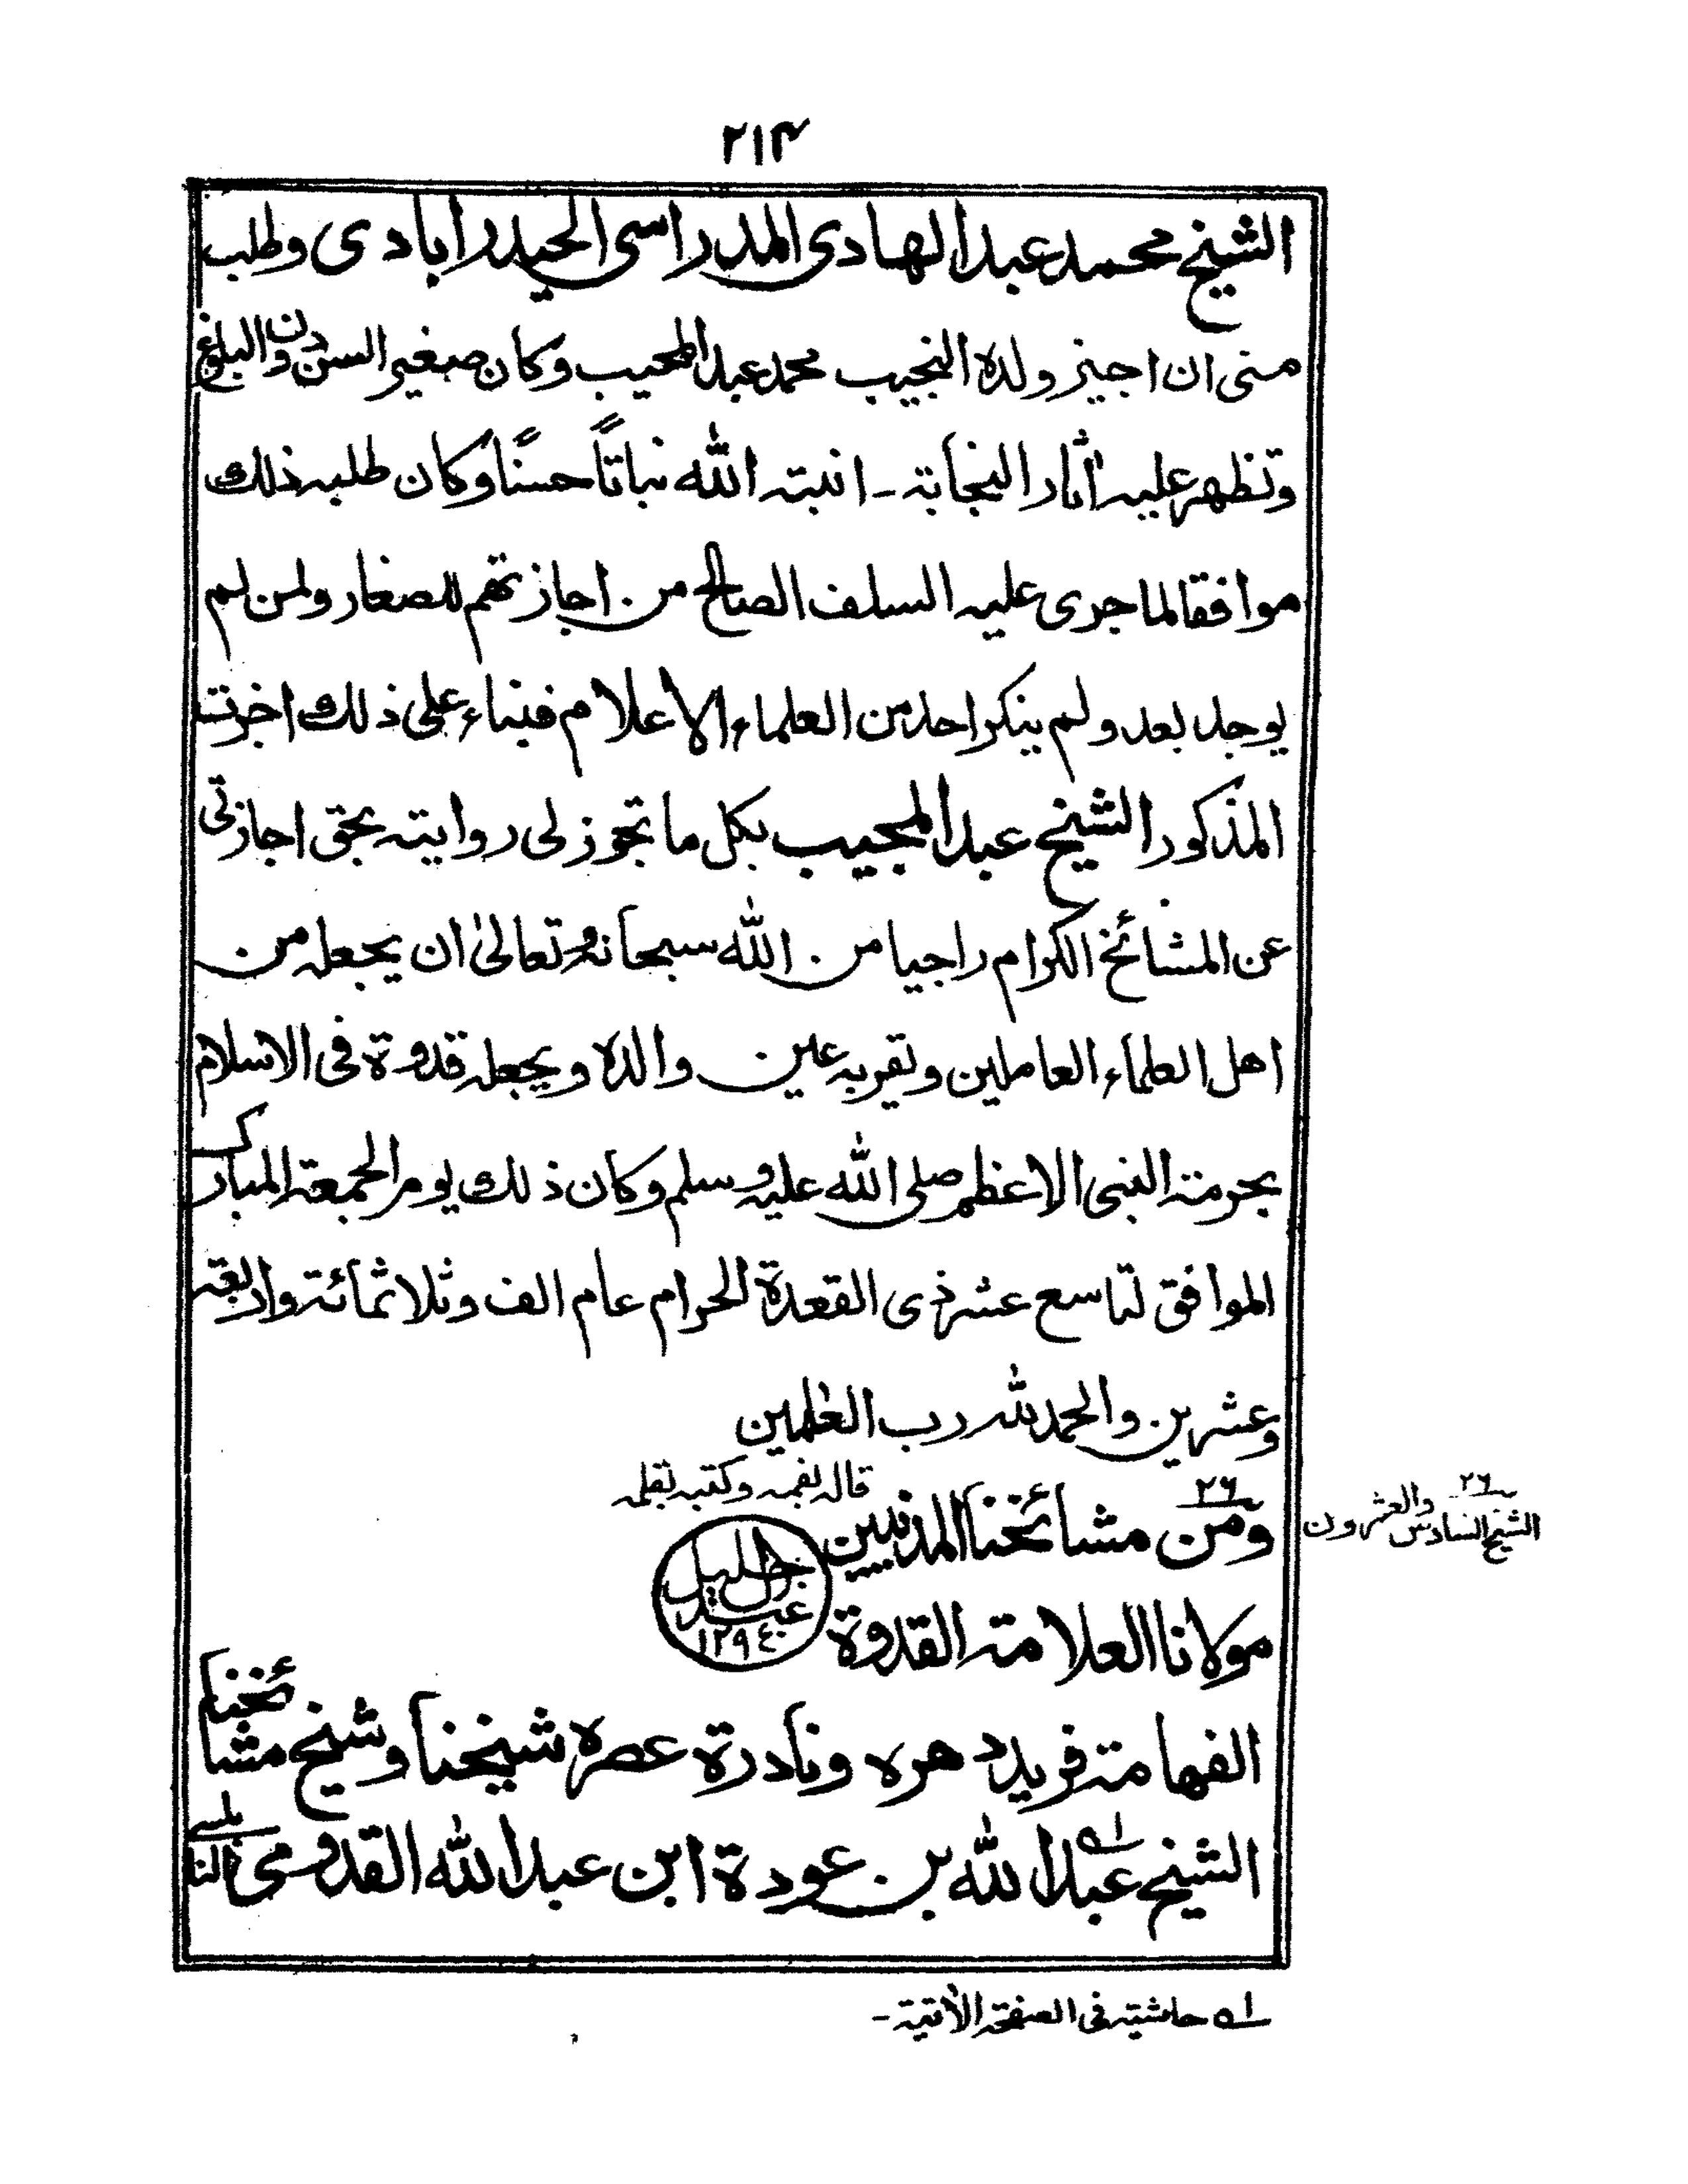 ٢١٤
الشيخ محمد عبد الهادى المدراسى الحيدرابادى وطلب
منى ان اجيز ولده النجيب محمد عبد المجيب وكان صغير السن دون البلوغ
وتظهر عليه اٰثار النجابة ـ انبته الله نباتاً حسناً وكان طلبه ذلك
موافقا لما جرى عليه السلف الصالح من اجازتهم للصغار ولمن لم
يوجد بعد ولم ينكر احد من العلماء الاعلام فبناء على ذلك اجزت
المذكور الشيخ عبد المجيب بكل ما تجوز لى روايته بحق اجازتى
عن المشائخ الكرام راجيا من الله سبحانه وتعالىٰ ان يجعله من
اهل العلماء العاملين وتقر به عين والده ويجعله قدوة فى الاسلام
بحرمة النبى الاعظم صلى الله عليه وسلم وكان ذلك يوم الجمعة المبارك
الموافق لتاسع عشر ذى القعدة الحرام عام الف وثلاثمائة واربعة
وعشرين والحمد لله رب العٰلمين
قاله بفمه وكتبه بقلمه
٢٦
ومن مشائخنا المدنيين
الشيخ السادس والعشرون
٢٦
خليل
عبد
١٢٩٤
مولانا العلامة القدوة
الفهامة فريد دهره ونادرة عصره شيخنا وشيخ مشائخنا
الشيخ عبد الله بن عودة ابن عبد الله القدومى النابلسے
ا؎ حاشية فى الصفحة الاٰتية ـ